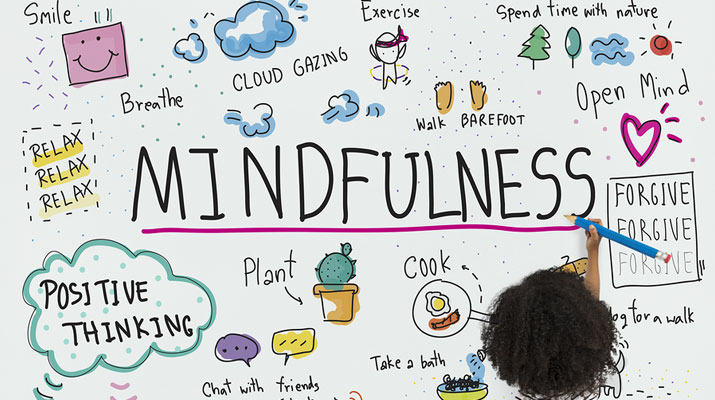 Smile
Exercise
Spend time with nature
CLOUD GAZING
Breathe
Walk BAREFOOT
Open Mind
RELAX
RELAX
RELAX
MINDFULNESS
FORGIVE
FORGIVE
FORGIVE
POSITIVE
THINKING
Plant
Cook
for a walk
Take a bath
Chat with friends